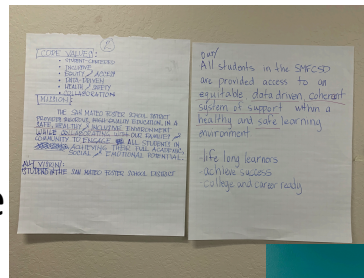 CORE VALUES:
• STUDENT-CENTERED
• INCLUSIVE
• EQUITY / ACCESS
• DATA-DRIVEN
• HEALTH / SAFETY
• COLLABORATION
MISSION:
THE SAN MATEO FOSTER SCHOOL DISTRICT
PROVIDES RIGOROUS, HIGH-QUALITY EDUCATION, IN A
SAFE, HEALTHY, INCLUSIVE ENVIRONMENT
WHILE COLLABORATING WITH OUR FAMILIES /
COMMUNITY TO ENGAGE ALL STUDENTS IN
ACHIEVING THEIR FULL ACADEMIC,
SOCIAL / EMOTIONAL POTENTIAL.
VISION:
THE SAN MATEO FOSTER SCHOOL DISTRICT
All students in the SMFCSD
are provided access to an
equitable data driven, coherent
system of support within a
healthy and safe learning
environment
-life long learners
-achieve success
-college and career ready
e